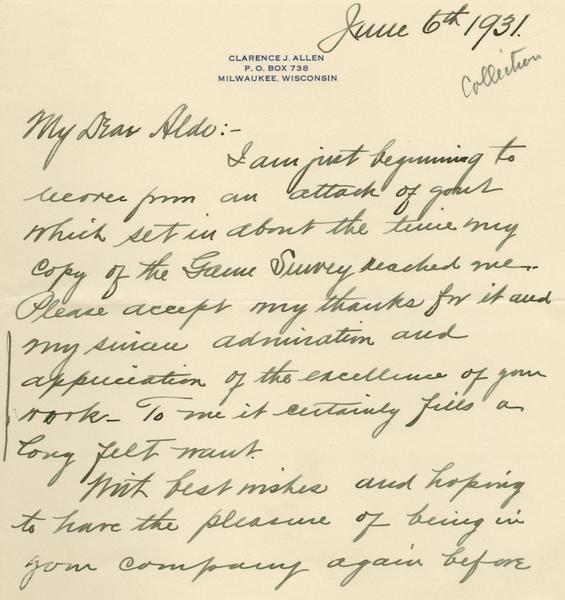 June 6th 1931.
CLARENCE J. ALLEN
P. O. BOX 738
MILWAUKEE, WISCONSIN
Collection
My Dear Aldo:-
I am just beginning to
recover from an attack of gout
which set in about the time my
copy of the Game Survey reached me.
Please accept my thanks for it and
my sincere admiration and
appreciation of the excellence of your
work - To me it certainly fills a
long felt want.
With best wishes and hoping
to have the pleasure of being in
your company again before